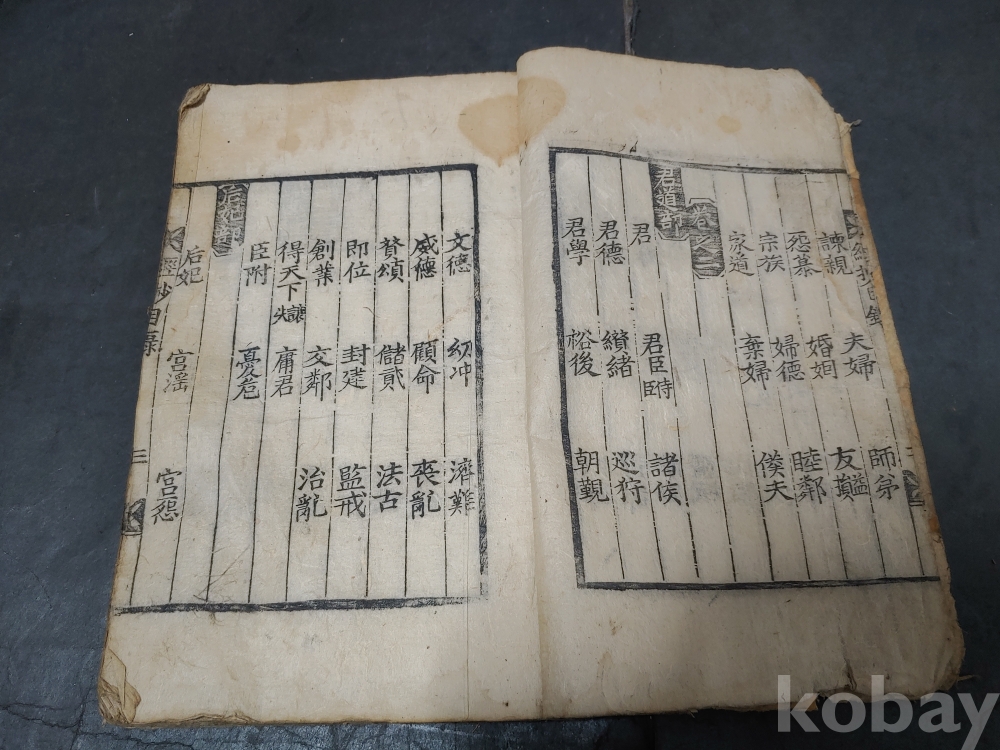 諫親 夫婦 師弟
怨慕 婚姻 友誼
宗族 婦德 睦鄰
家道 棄婦 僕夫
卷之二
君道部
君 君臣 臣侍 諸侯
君德 纘緖 巡狩
君學 裕後 朝覲
文德 幼冲 濟難
威德 顧命 喪亂
賛頌 儲貳 法古
即位 封建 監戒
創業 交鄰 治亂
得天下 失讓 庸君
臣附 憂危
后妃部
后妃 宮淫 宮怨
經抄目录 三
kobay